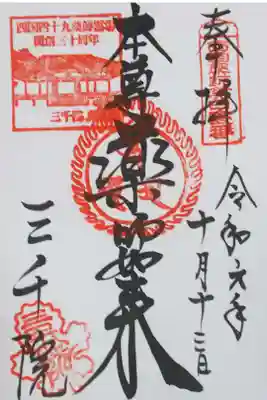 奉拝
令和元年
十月十三日
本尊薬師如来
三千院
四国四十九薬師霊場
開創三十周年
三千院